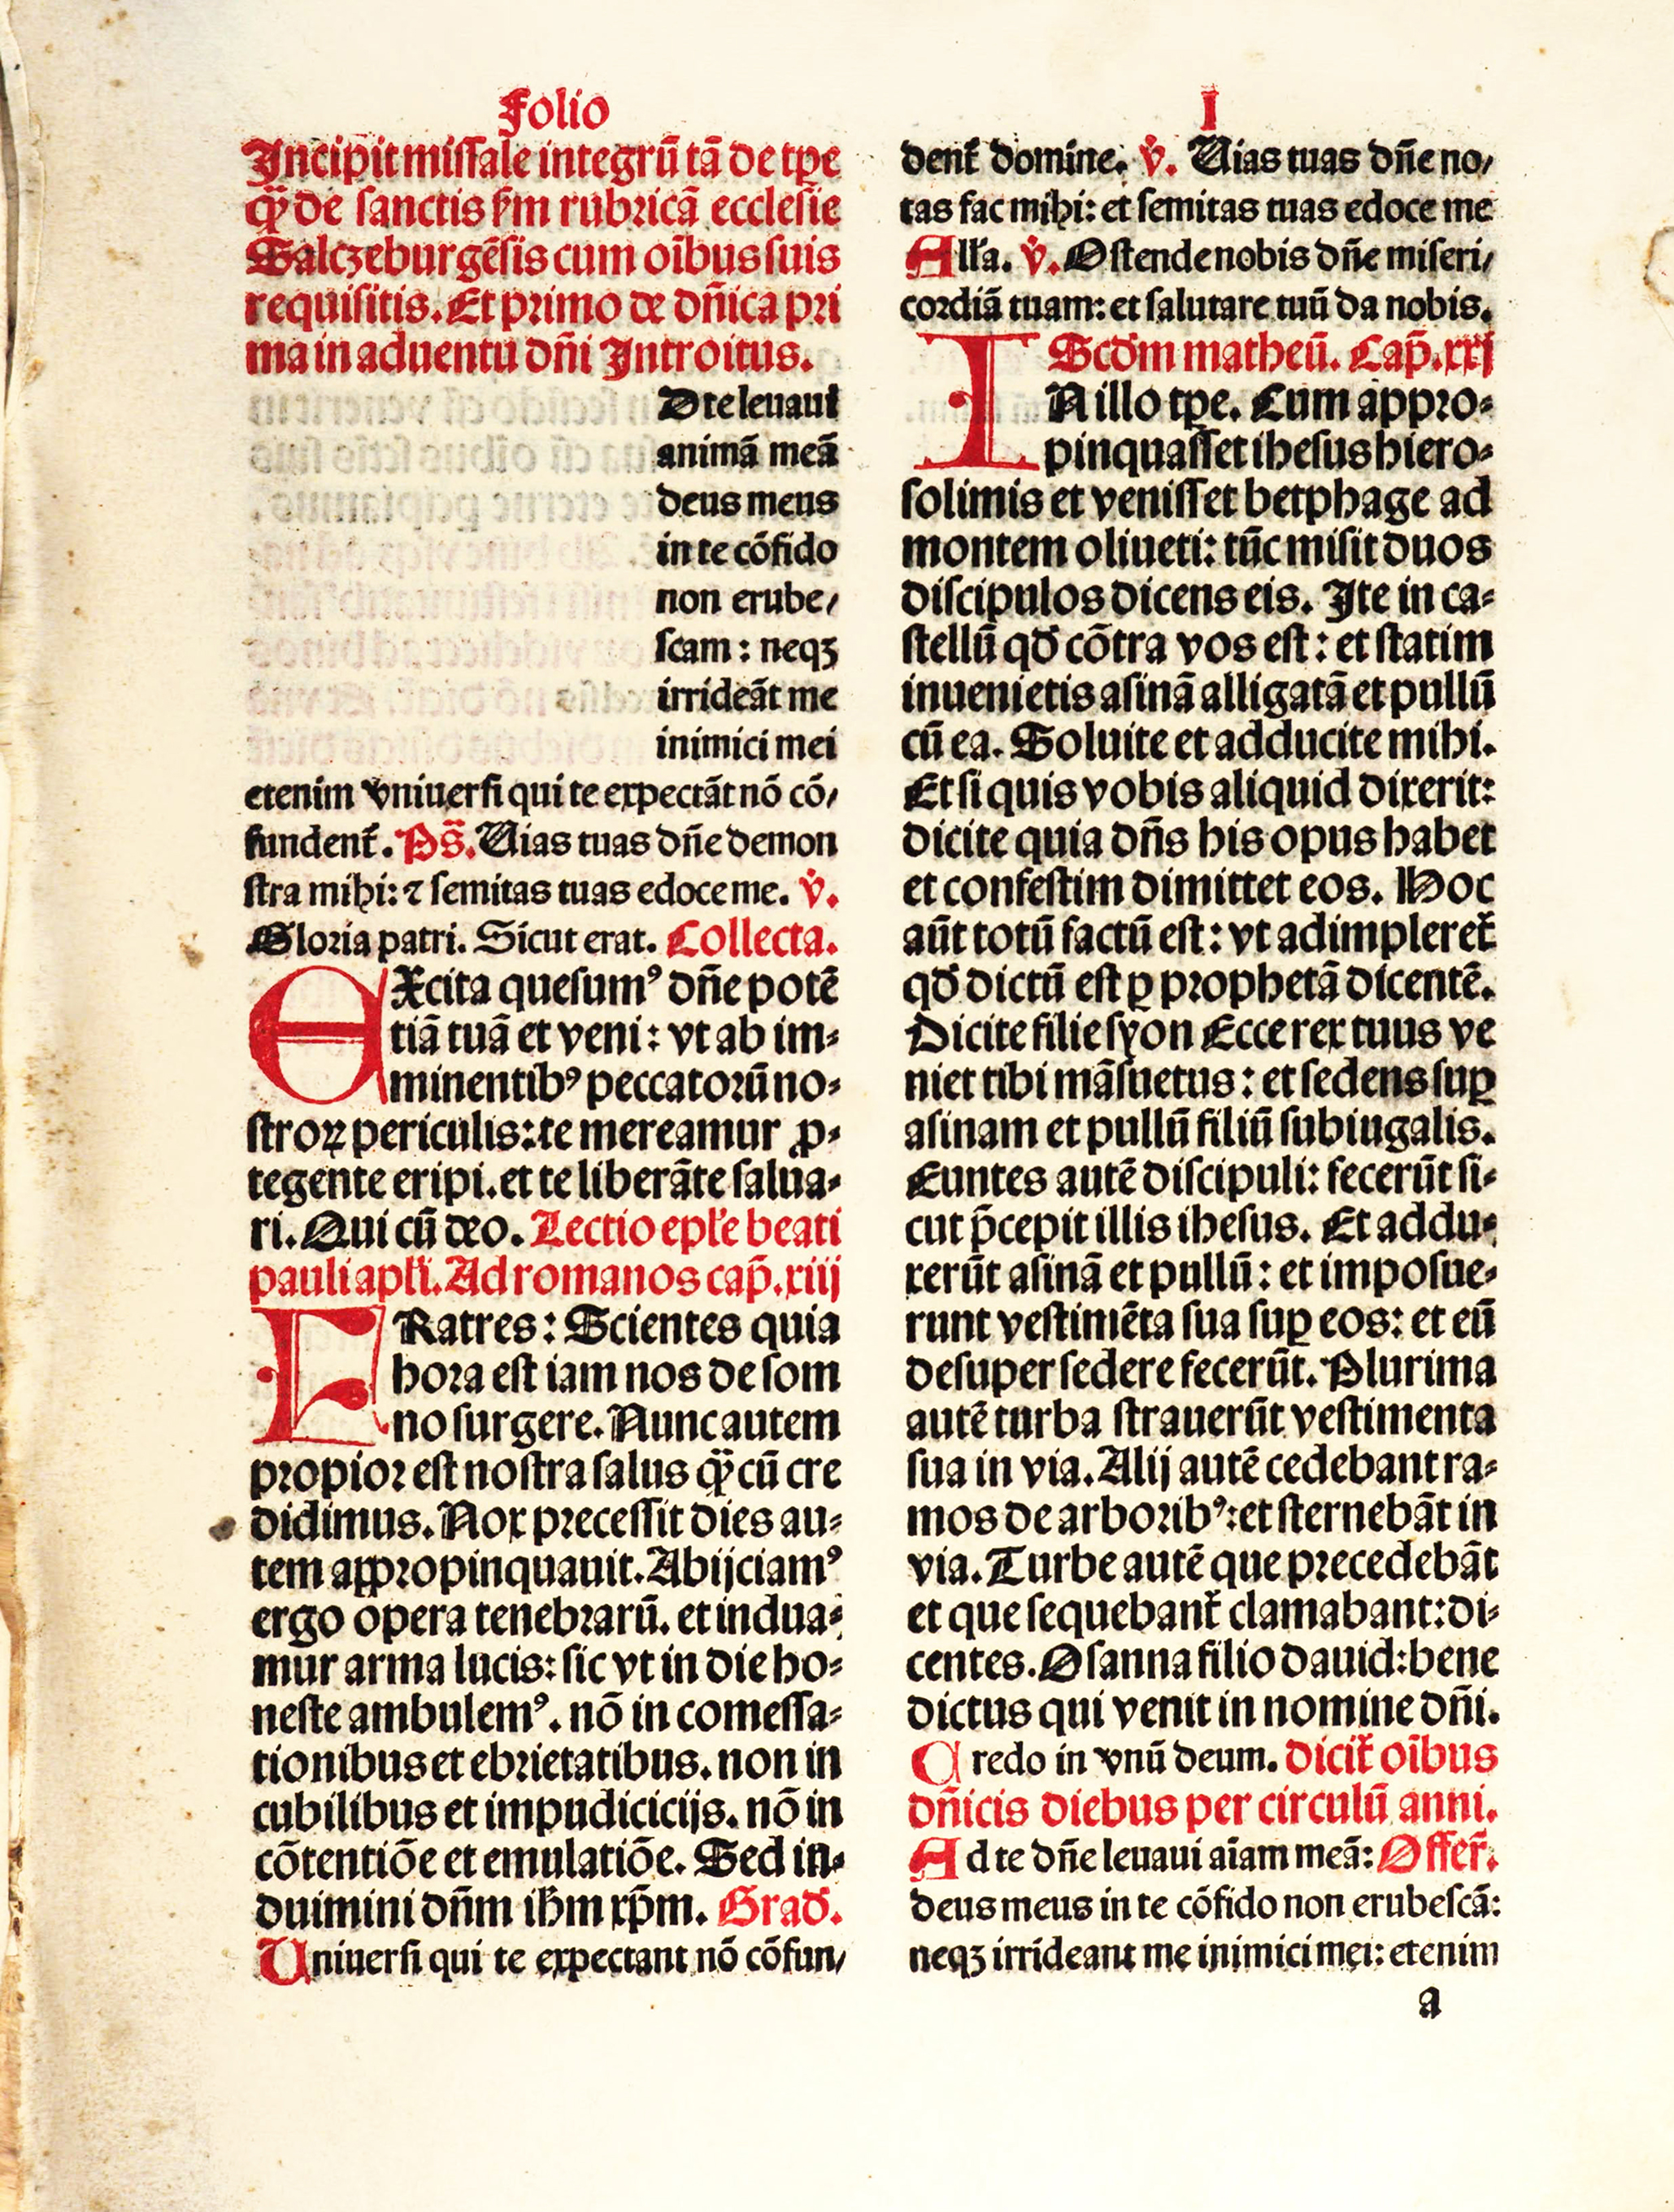 Folio
Incipit missale integrū tā de tꝑe
qͫ̈ de sanctis ẜm rubricā ecclesie
Salczeburgēsis cum oībus suis
requisitis. Et primo de dn̄ica pri
ma in aduentu dn̄i Introitus.
D te leuaui
animā meā
deus meus
in te cōfido
non erube/
scam : neqꝫ
irrideāt me
inimici mei
etenim vniuersi qui te expectāt nō cō/
fundent̄. Ps̄. Uias tuas dn̄e demon
stra mihi: ⁊ semitas tuas edoce me. v̊.
Gloria patri. Sicut erat. Collecta.
EXcita quesumꝰ dn̄e potē
tiā tuā et veni : vt ab im⸗
minentibꝰ peccatorū no⸗
stroꝝ periculis: te mereamur ꝓ⸗
tegente eripi. et te liberāte salua⸗
ri. Qui cū deo. Lectio epl̄e beati
pauli apl̄i. Ad romanos cap̄. xiij
FRatres : Scientes quia
hora est iam nos de som
no surgere. Nunc autem
propior est nostra salus qͫ̈ cū cre
didimus. Nox precessit dies au⸗
tem appropinquauit. Abijciamꝰ
ergo opera tenebrarū. et indua⸗
mur arma lucis: sic vt in die ho⸗
neste ambulemꝰ. nō in comessa⸗
tionibus et ebrietatibus. non in
cubilibus et impudicicijs. nō in
cōtentiōe et emulatiōe. Sed in⸗
duimini dn̄m ih̄m xp̄m. Grad̄.
Uniuersi qui te expectant nō cōfun/
I
dent̄ domine. v̊. Uias tuas dn̄e no/
tas fac mihi: et semitas tuas edoce me
All̄a. v̊. Ostende nobis dn̄e miseri/
cordiā tuam: et salutare tuū da nobis.
Scd̄m matheū. Cap̄. xxj
IN illo tꝑe. Cum appro⸗
pinquasset ihesus hiero⸗
solimis et venisset betphage ad
montem oliueti: tūc misit duos
discipulos dicens eis. Ite in ca⸗
stellū qd̄ cōtra vos est : et statim
inuenietis asinā alligatā et pullū
cū ea. Soluite et adducite mihi.
Et si quis vobis aliquid dixerit:
dicite quia dn̄s his opus habet
et confestim dimittet eos. Hoc
aūt totū factū est : vt adimpleret̄
qd̄ dictū est ꝑ prophetā dicentē.
Dicite filie syon Ecce rex tuus ve
niet tibi māsuetus : et sedens suꝑ
asinam et pullū filiū subiugalis.
Euntes autē discipuli: fecerūt si⸗
cut p̄cepit illis ihesus. Et addu⸗
xerūt asinā et pullū : et imposue⸗
runt vestimēta sua suꝑ eos: et eū
desuper sedere fecerūt. Plurima
autē turba strauerūt vestimenta
sua in via. Alij autē cedebant ra⸗
mos de arboribꝰ: et sternebāt in
via. Turbe autē que precedebāt
et que sequebant̄ clamabant: di⸗
centes. Osanna filio dauid: bene
dictus qui venit in nomine dn̄i.
Credo in vnū deum. dicit̄ oībus
dn̄icis diebus per circulū anni.
Ad te dn̄e leuaui aīam meā: Offer̄.
deus meus in te cōfido non erubescā:
neqꝫ irrideant me inimici mei: etenim
a